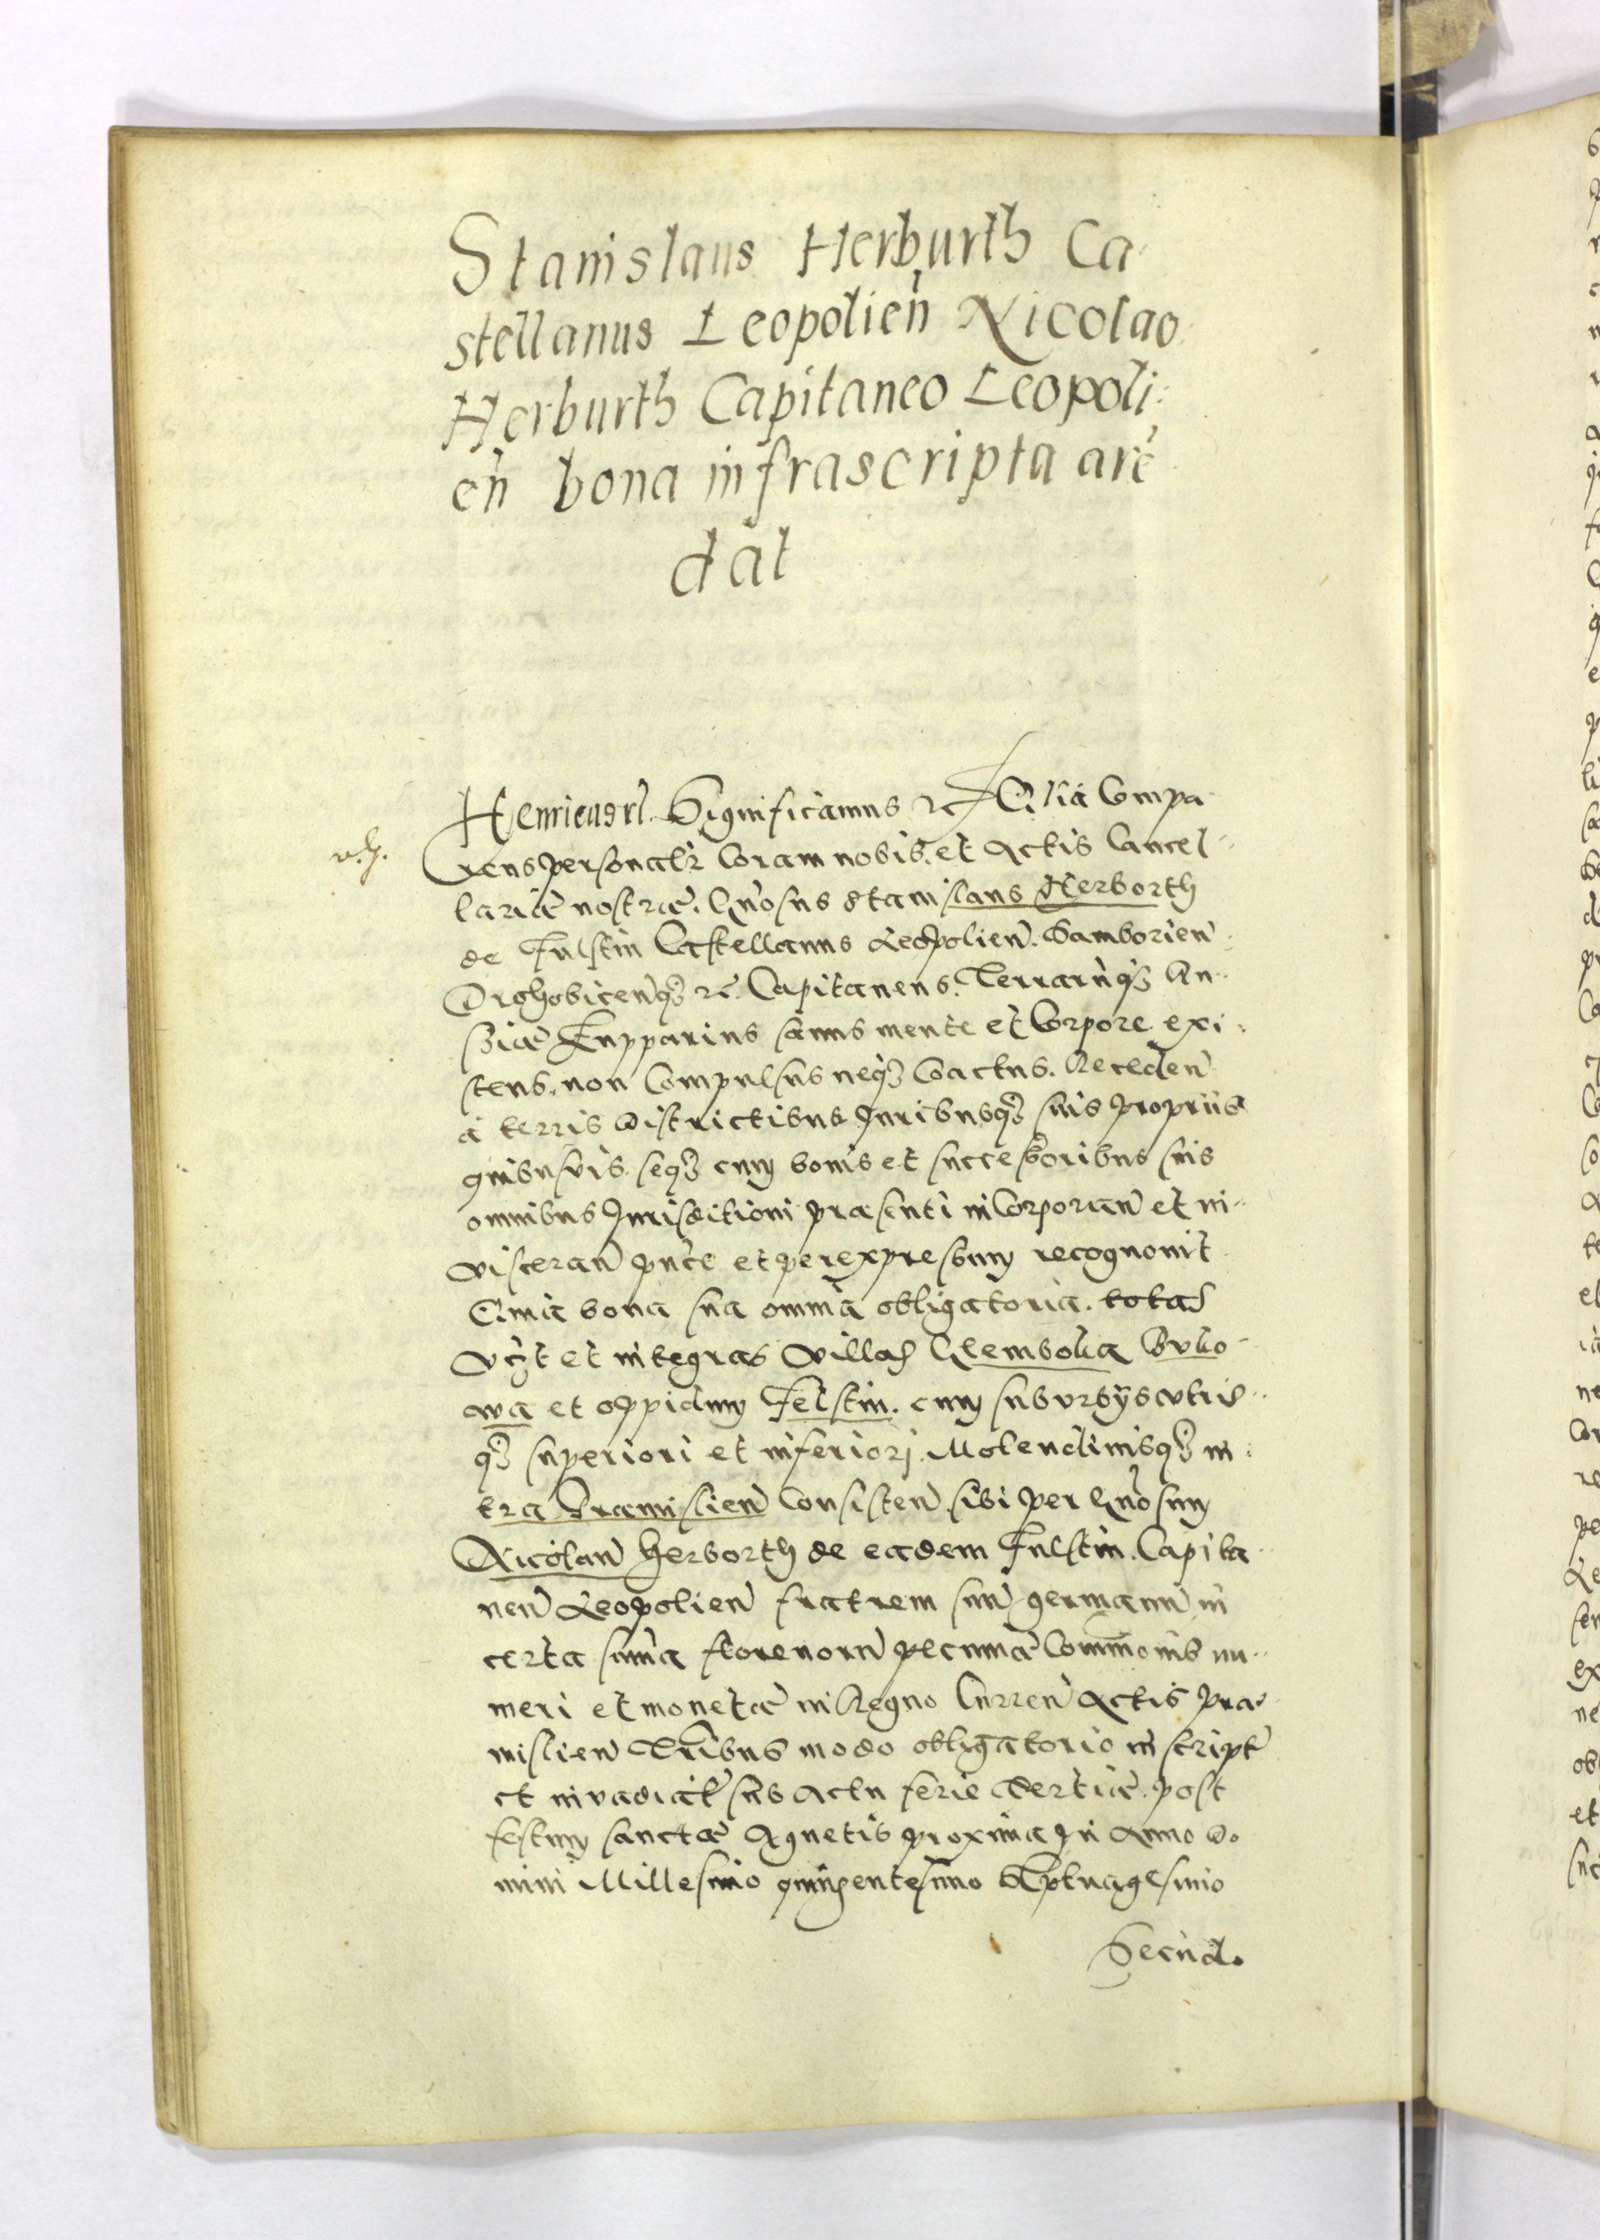 Stanislaus Herburth Ca
stellanus Leopolien̄ Nicolao
Herburth Capitaneo Leopoli
en̄ bona infrascripta arē
dat
Henricus rl. Significamus &c Quia Compa
v. h.
rens personalr Coram nobis et Actis Cancel
lariæ nostræ. Gn̄osus Stanislaus Herborth
de Fulstin Castellanus Leopolien̄. Samborien̄
Drohobicen̄q3 &c. Capitaneus. Terrarūq3 Ru
ssiæ Zupparius sanus mente et Corpore exi
stens, non Compulsus neq3 Coactus. Receden̄
à terris Districtibus Juribusq3 suis proprijs
quibusvis. seq3 cum bonis et successoribus suis
omnibus Jurisdictioni præsenti inCorporan̄ et in
visceran̄ pn̄te et per expressum recognovit
Quia bona sua omnia obligatoria. totas
vc3t et integras villas Glemboka Buko
wa et oppidum Felstin. cum suburbijs utris
q3 superiori et inferiorj. Molendinisq3 in
tra Præmislien̄ Consisten̄ sibi per Gn̄osum
Nicolaū Herborth de eadem Fulstin. Capita
neū Leopolien̄ fratrem suū germanū in
certa sum̄a florenorū pecuniæ Com̄unis nu
meri et monetæ in Regno Curren̄ Actis Præ
mislien̄ Tr̄ibus modo obligatorio inscript
et invadiat sub Actu ferie Tertiæ post
festum sanctæ Agnetis proxima In Anno Do
mini Millesimo quingentesimo septuagesimo
Secūd.